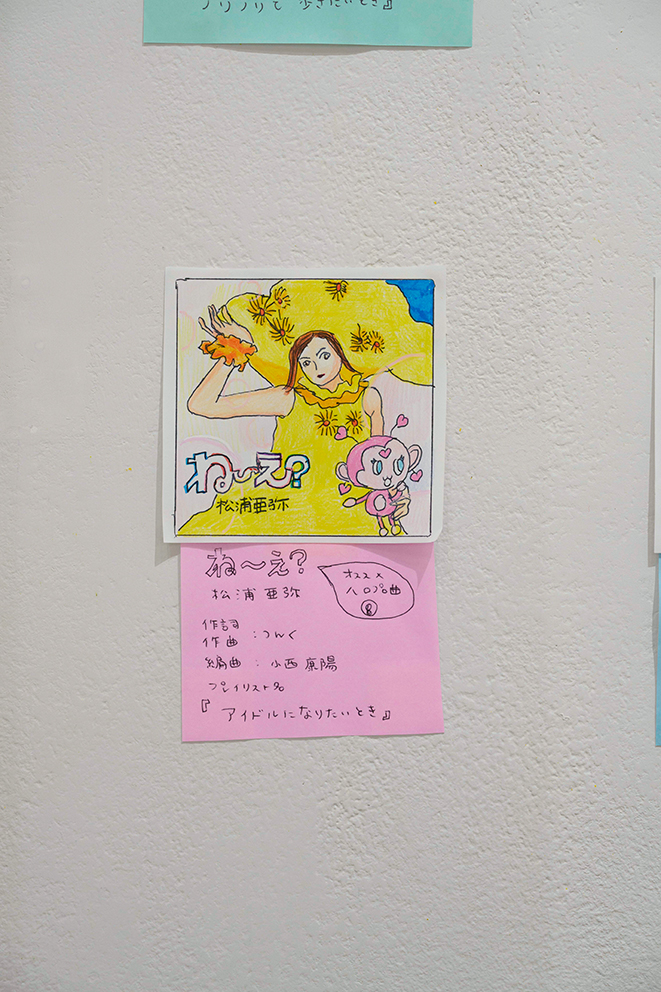 ノリノリで歩きたいとき』
ね〜え?
松浦亜弥
ね〜え?
松浦亜弥
オススメ
ハロプロ曲
⑧
作詞
作曲:つんく
編曲:小西康陽
プレイリスト名
『アイドルになりたいとき』